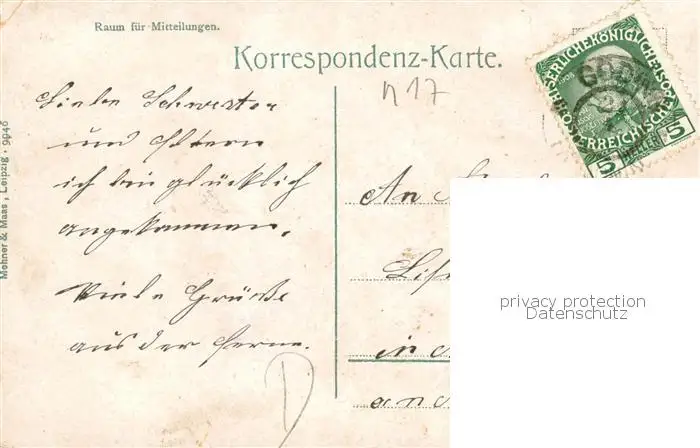 Raum für Mitteilungen.
Korrespondenz-Karte.
n 17
Liebe Schwester
und Eltern
ich bin glücklich
angekommen.
Viele Grüße
aus der Ferne.
An
in
D
Mehner & Maas, Leipzig. 9946
1908
5 HELLER 5
privacy protection
Datenschutz